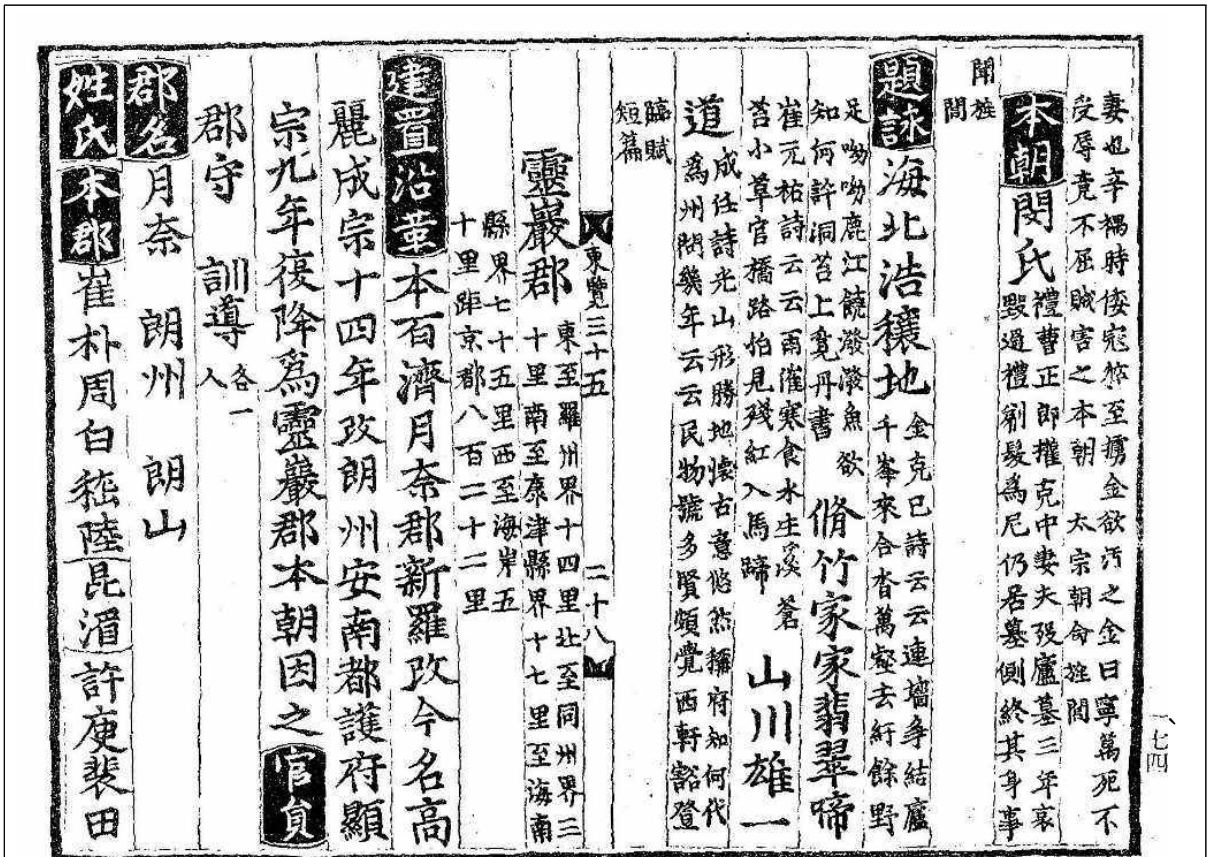 妻也辛禑時倭寇猝至擄金欲汚之金曰寧萬死不
受辱竟不屈賊害之本朝 太宗朝命旌閭
本朝 閔氏 禮曹正郎權克中妻夫歿廬墓三年哀
毁過禮剃髮爲尼仍居墓側終其身事
聞旌
閭
題詠 海北浩穰地 金克已詩云云連墻爭結廬
千峯來合沓萬壑去紆餘野
足呦呦鹿江饒潑潑魚欲
知何許洞苔上覓丹書 脩竹家家翡翠啼
崔元祐詩云云雨催寒食水生溪蒼
苔小草官橋路怕見殘紅入馬蹄 山川雄一
道 成任詩光山形勝地懷古意悠然稱府知何代
爲州問幾年云云民物號多賢頻覺西軒豁登
臨賦
短篇
東覽三十五 二十八
靈巖郡 東至羅州界十四里北至同州界三
十里南至康津縣界十七里至海南
縣界七十五里西至海岸五
十里距京都八百二十二里
建置沿革 本百濟月奈郡新羅改今名高
麗成宗十四年改朗州安南都護府顯
宗九年復降爲靈巖郡本朝因之 官員
郡守 訓導 各一
人
郡名 月奈 朗州 朗山
姓氏 本郡 崔朴周白嵇陸 昆湄 許庾裴田
一、七四